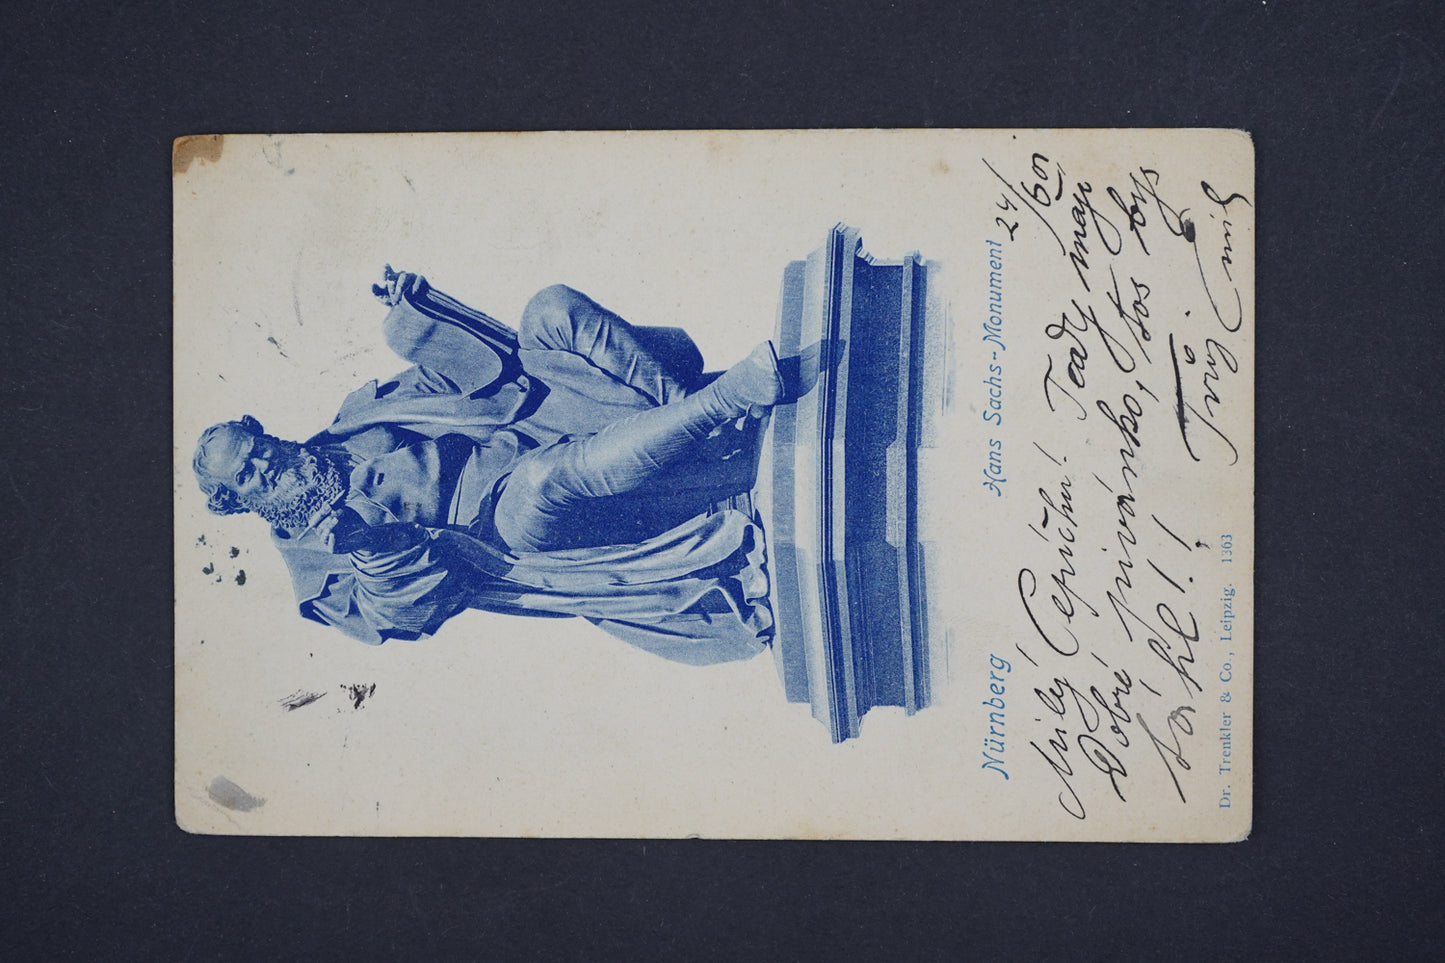 Nürnberg Hans Sachs-Monument
24/6 01
Milý Pepíčku! Tady mají
Dobré pivánko, to's bys
táhl!!
Tvůj
Dr. Trenkler & Co., Leipzig. 1363